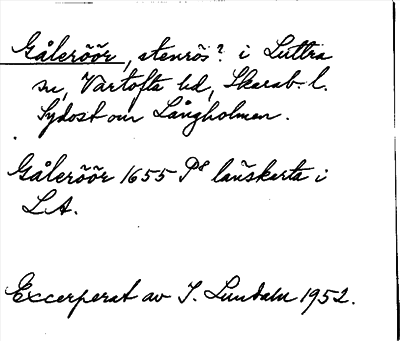 Gåleröör, stenrös? i Luttra
sn, Vartofta hd, Skarab. l.
Sydost om Långholmen.
Gåleröör 1655 P8 lantmäterikarta i
LA.
Excerperat av I. Lundahl 1952.